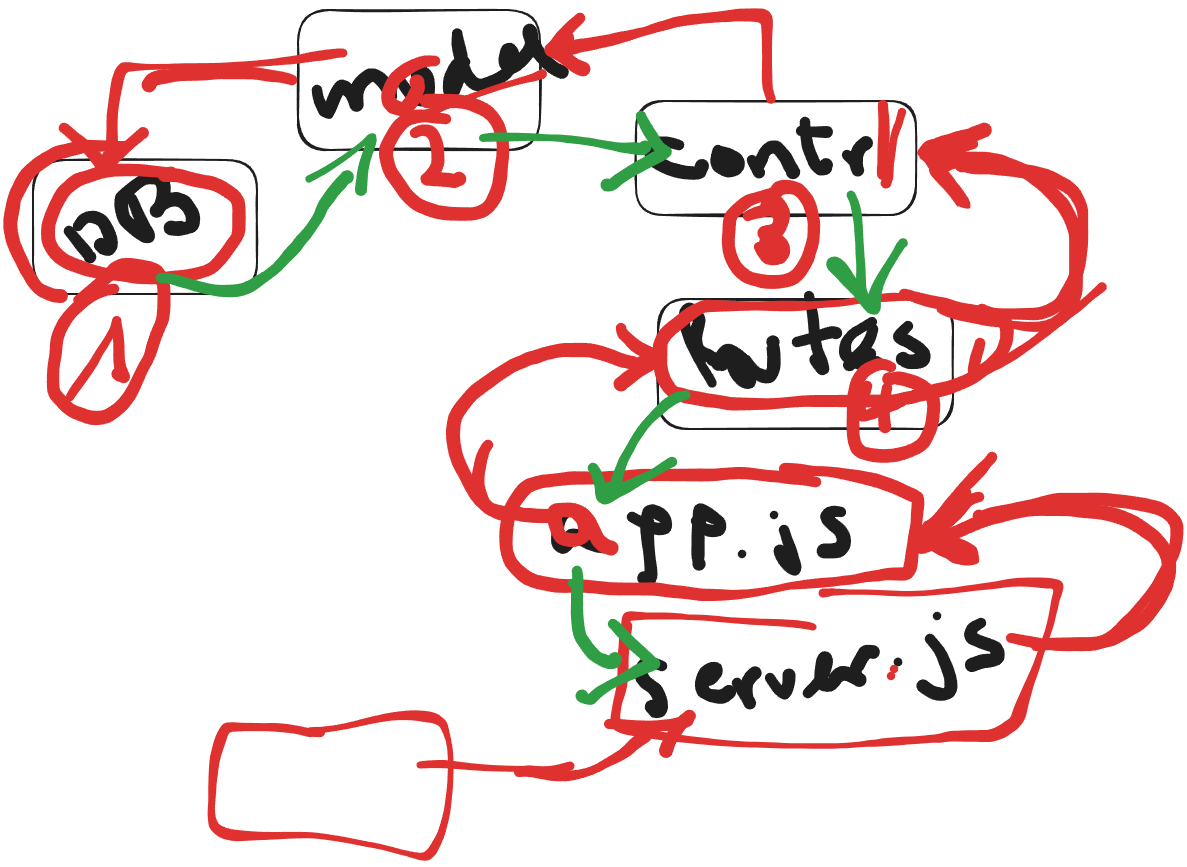 model
2
contrl
DB
3
1
Rutes
4
app.js
server.js